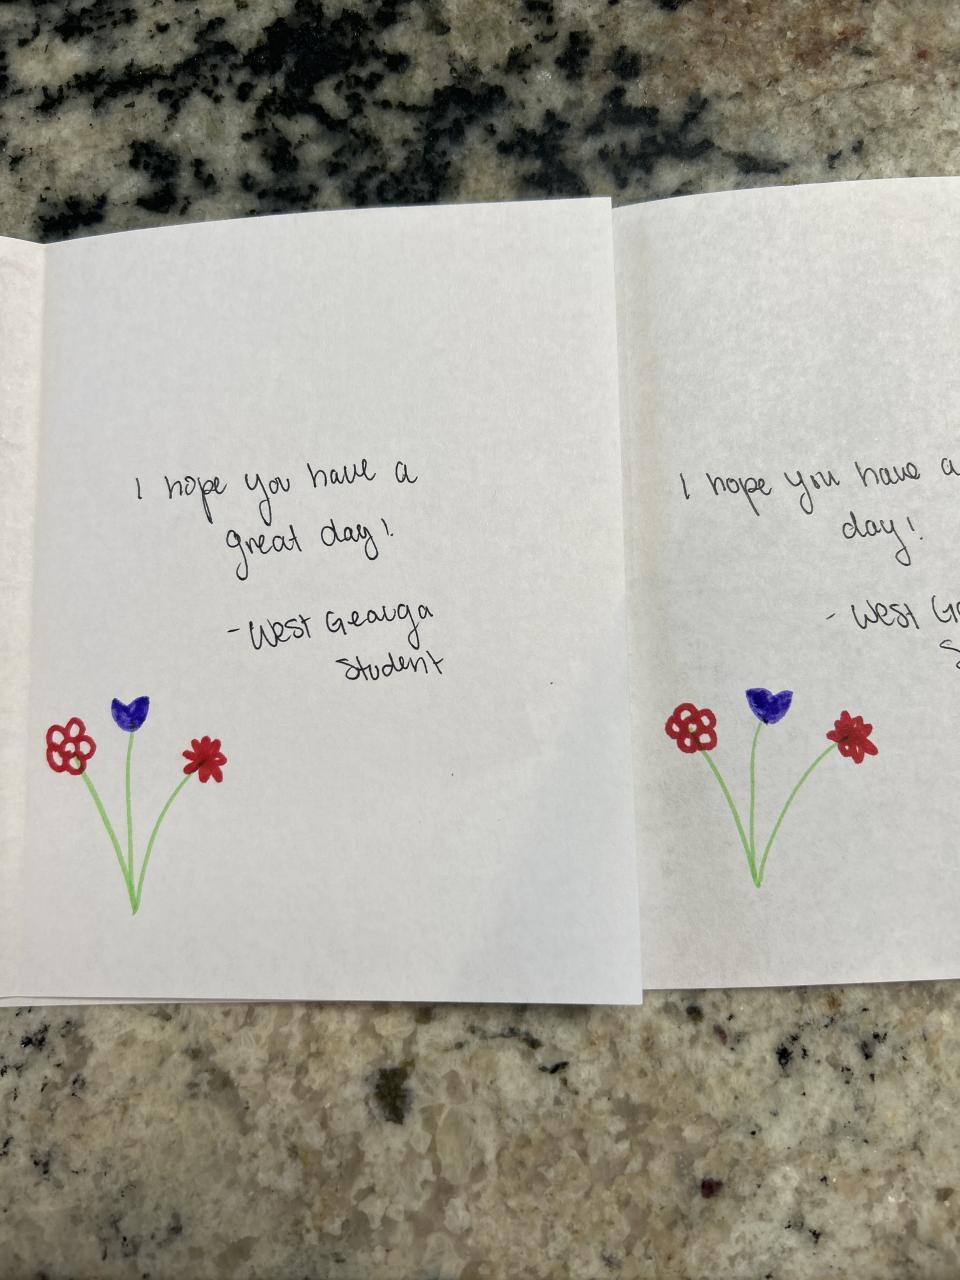 I hope you have a
great day!
-West Geauga
Student
I hope you have a
day!
- West